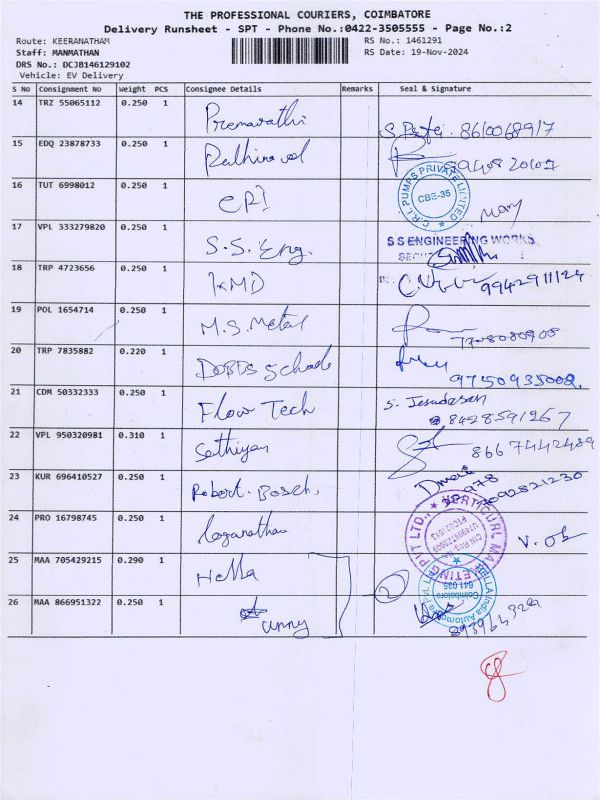 THE PROFESSIONAL COURIERS, COIMBATORE
Delivery Runsheet - SPT - Phone No.:0422-3505555 - Page No.:2
Route: KEERANATHAM RS No.: 1461291
Staff: MANMATHAN RS Date: 19-Nov-2024
DRS No.: DCJB146129102
Vehicle: EV Delivery
S No Consignment No Weight PCS Consignee Details Remarks Seal & Signature
14 TRZ 55065112 0.250 1 Premavathi 8610068917
15 EDQ 23878733 0.250 1
16 TUT 6998012 0.250 1 CRI C.R.I. PUMPS PRIVATE LIMITED CBE-35
17 VPL 333279820 0.250 1 S.S. Eng. S S ENGINEERING WORKS
18 TRP 4723656 0.250 1 KMD 9942911124
19 POL 1654714 0.250 1 M.S. Metal 7708080908
20 TRP 7835882 0.220 1 9750935002
21 CDM 50332333 0.250 1 Flow Tech S. Jesudasan
8428591267
22 VPL 950320981 0.310 1 Sathiyan 8667442489
23 KUR 696410527 0.250 1 Robert. Bosch. 7092821230
24 PRO 16798745 0.250 1 Loganathan VERTICURL MARKETING PVT LTD.,
25 MAA 705429215 0.290 1 Hella 2 HELLA India Automotive Pvt Ltd Coimbatore 641 035
26 MAA 866951322 0.250 1 unny